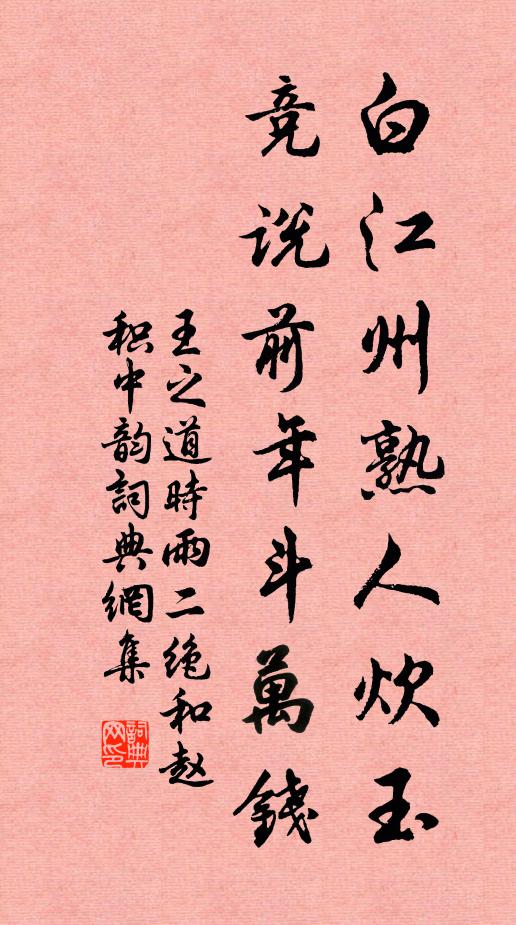 白江州熟人炊玉
竞说前年斗萬錢
王之道時雨二绝和赵
积中韵詞典網集
詞典
网印